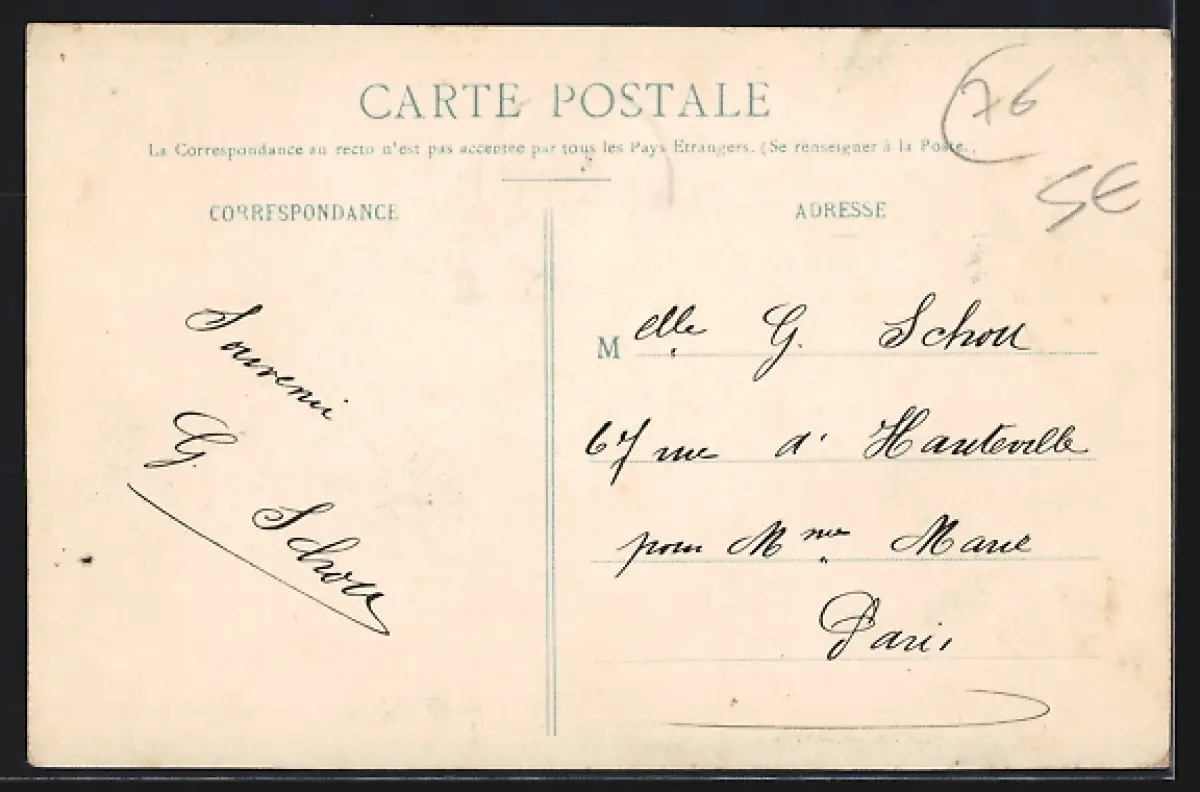 CARTE POSTALE
La Correspondance au recto n'est pas acceptée par tous les Pays Etrangers. (Se renseigner à la Poste.)
76
SE
CORRESPONDANCE
Souvenir
G. Schou
ADRESSE
Melle G. Schou
67 rue d'Hauteville
pour Mme Marie
Paris